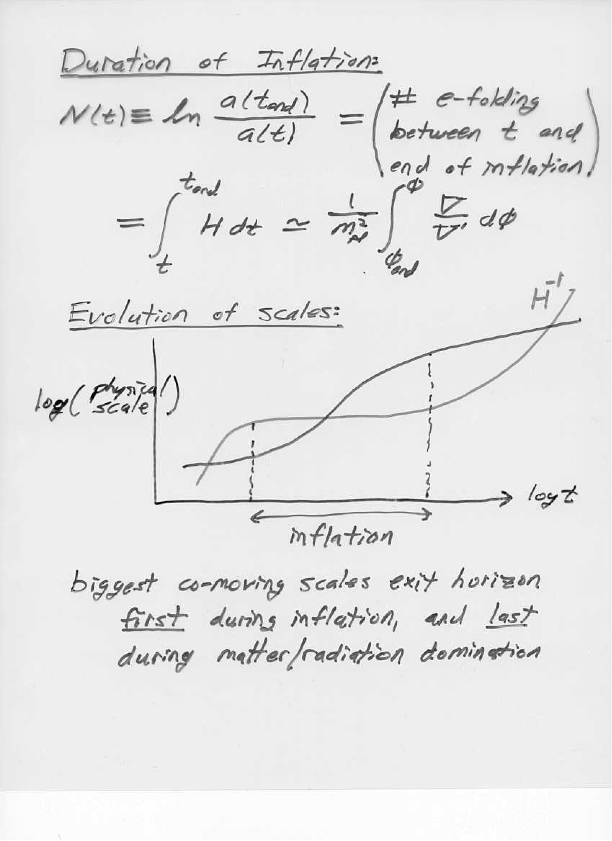 Duration of Inflation:
N(t) ≡ ln a(t_end)/a(t) = (# e-folding between t and end of inflation)
= ∫_t^{t_end} H dt ≃ 1/m_pl² ∫_{φ_end}^{φ} V/V' dφ
Evolution of scales:
H⁻¹
log(physical scale)
log t
inflation
biggest co-moving scales exit horizon
first during inflation, and last
during matter/radiation domination